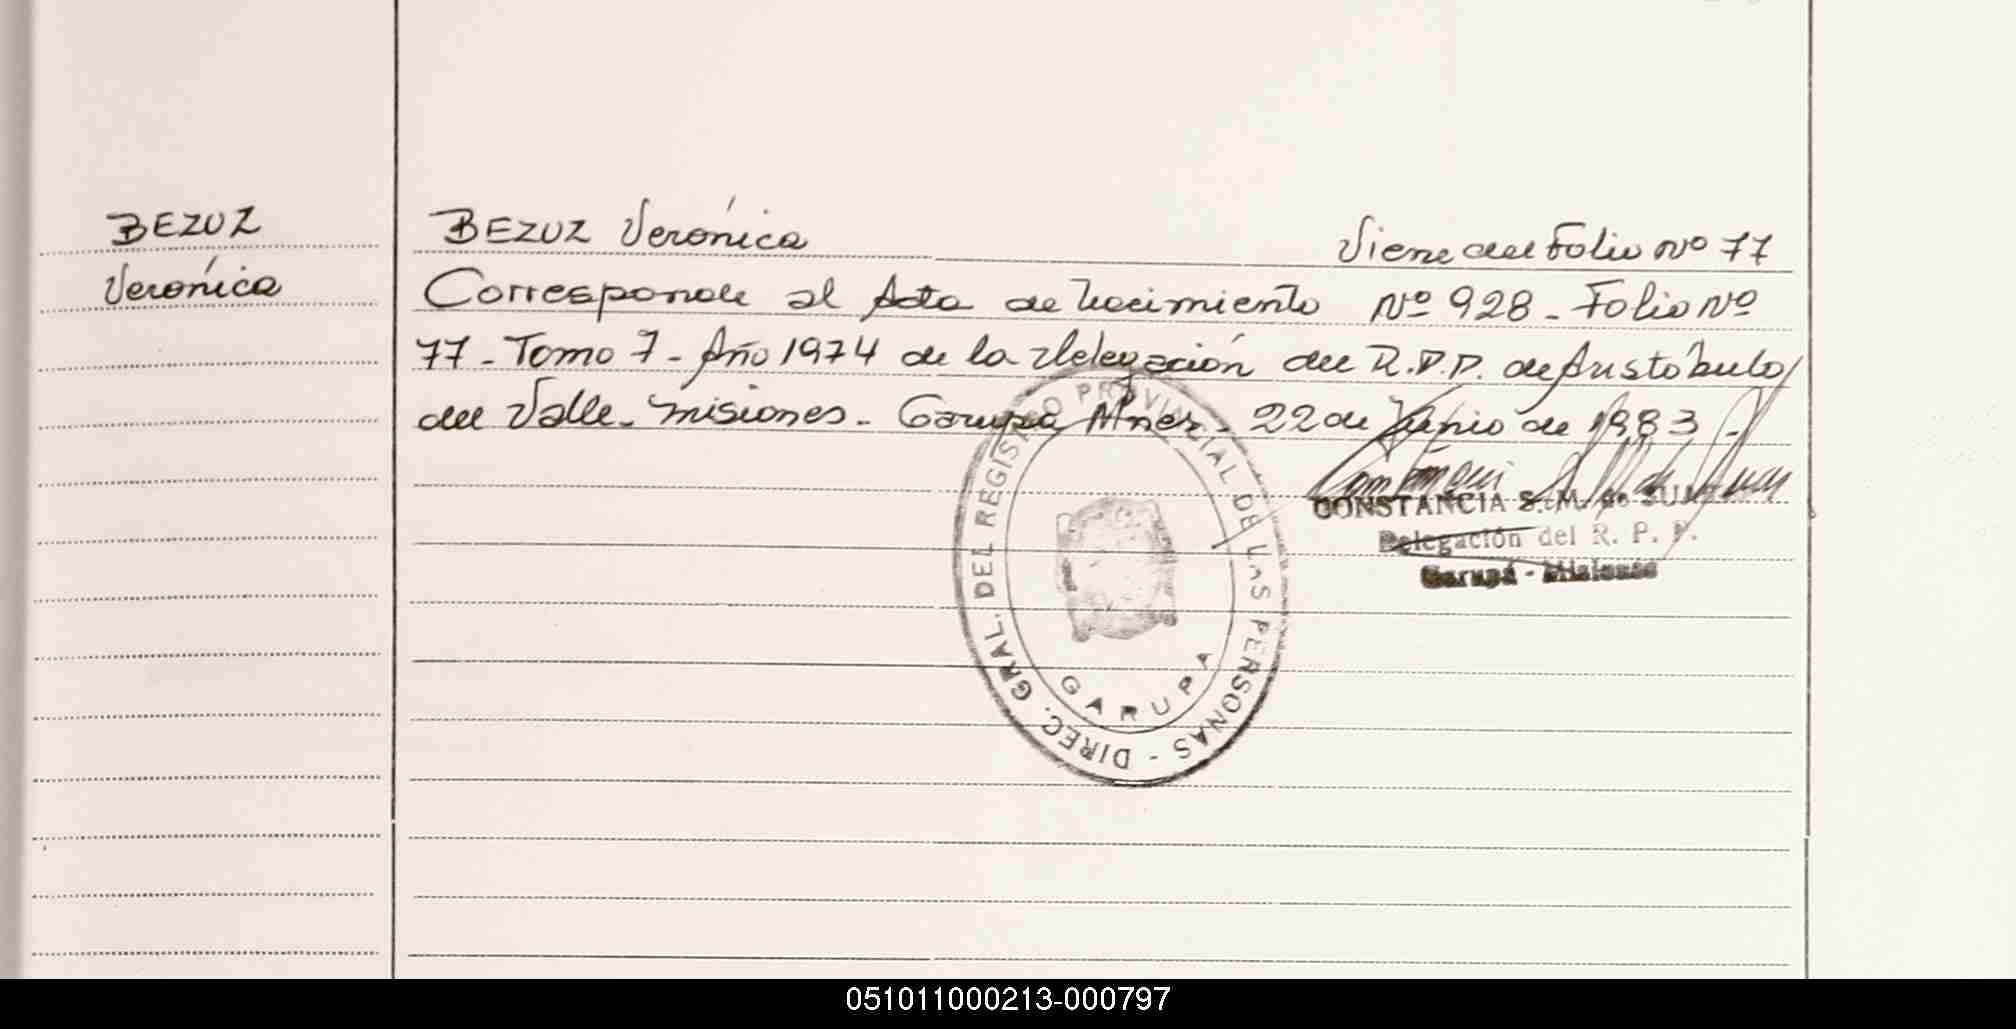 BEZUZ
Verónica
BEZUZ Verónica Viene del Folio Nº 77
Corresponde al Acta de Nacimiento Nº 928 - Folio Nº
77 - Tomo 7 - Año 1974 de la Delegación del R.P.P. de Aristóbulo
del Valle - Misiones - Garupá Mnes - 22 de Junio de 1983 -
CONSTANCIA S. M. de
Delegación del R. P. P.
Garupá - Misiones
DIREC. GRAL. DEL REGISTRO PROVINCIAL DE LAS PERSONAS -
GARUPA
051011000213-000797